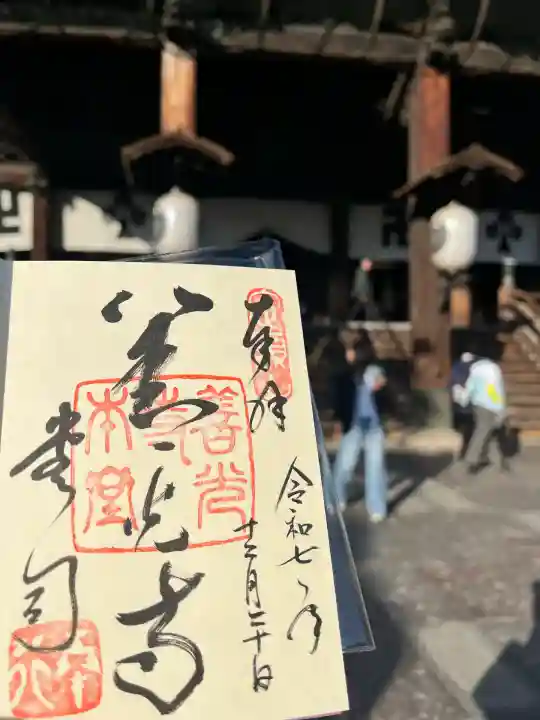 奉拝
令和七年
十二月二十日
善光寺
善光寺本堂